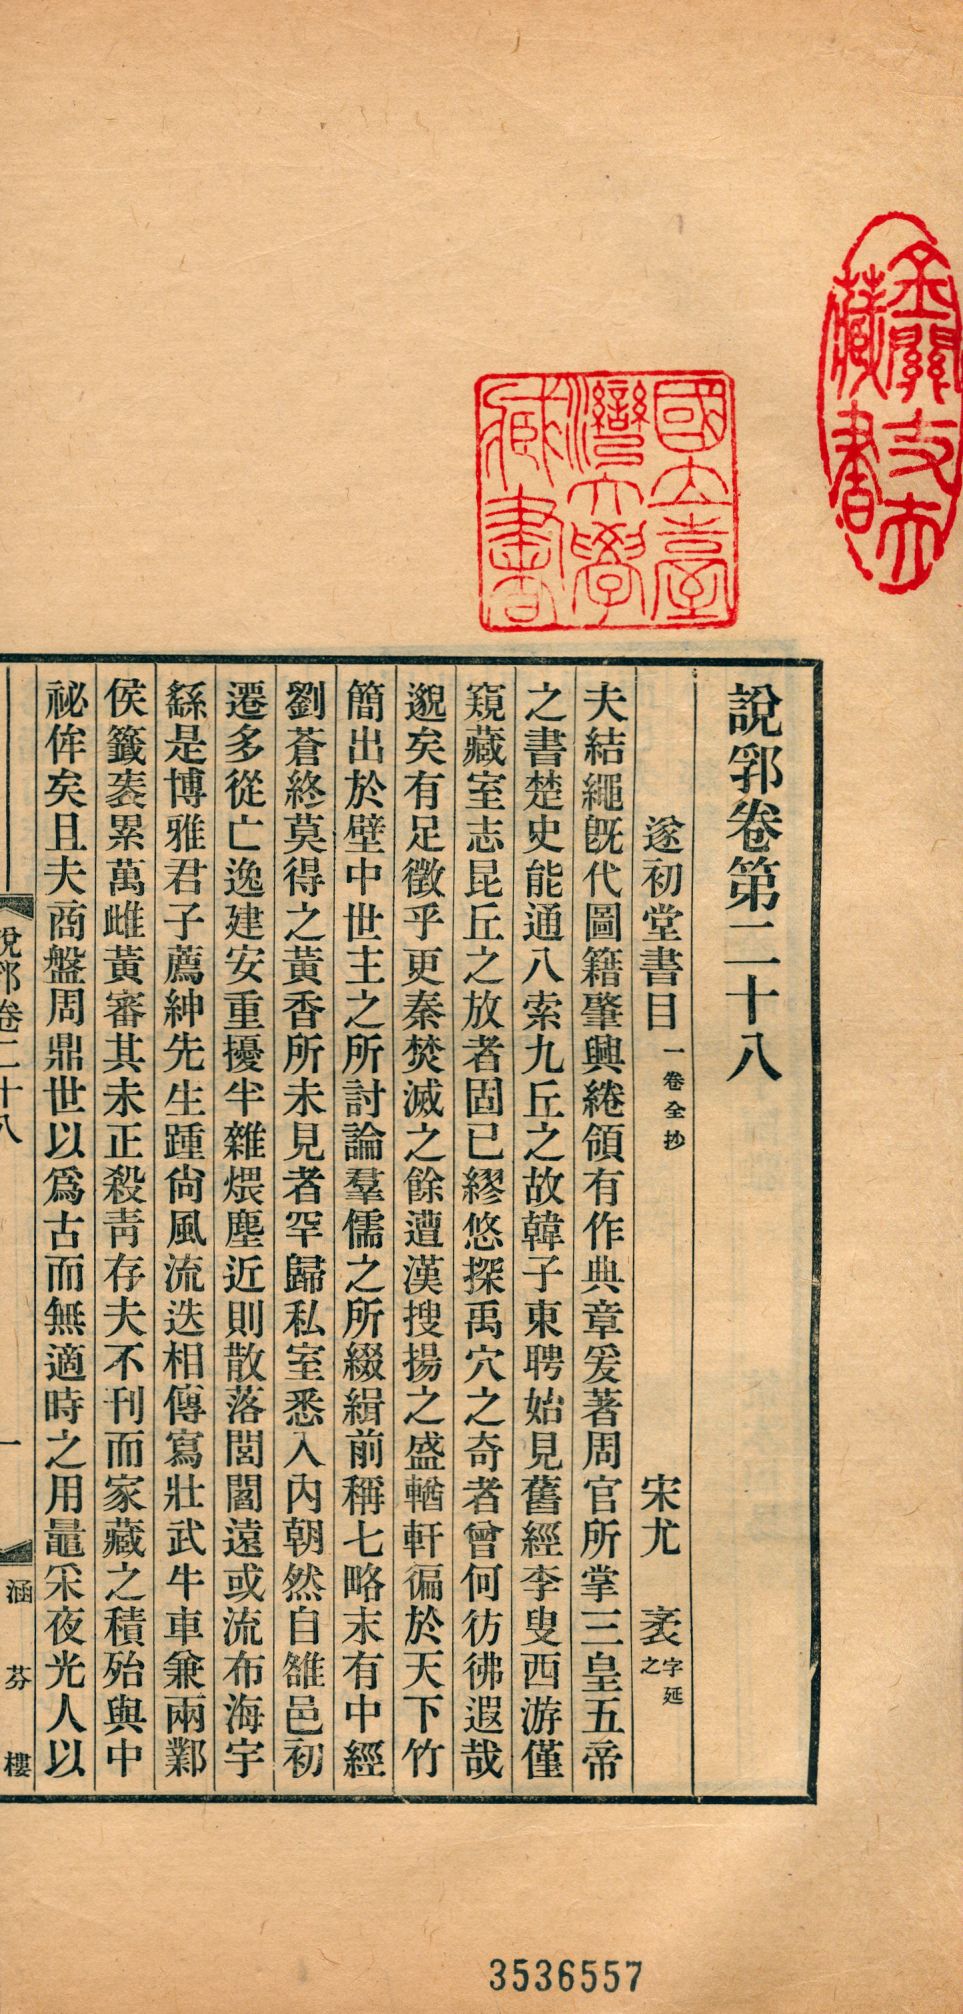 說郛卷第二十八
遂初堂書目 一卷全抄 宋尤 袤 字延之
夫結繩旣代圖籍肇興綣領有作典章爰著周官所掌三皇五帝
之書楚史能通八索九丘之故韓子東聘始見舊經李叟西游僅
窺藏室志昆丘之放者固已繆悠探禹穴之奇者曾何彷彿遐哉
邈矣有足徵乎更秦焚滅之餘遭漢搜揚之盛輶軒徧於天下竹
簡出於壁中世主之所討論羣儒之所綴緝前稱七略末有中經
劉蒼終莫得之黃香所未見者罕歸私室悉入內朝然自雒邑初
遷多從亡逸建安重擾半雜煨塵近則散落閭閻遠或流布海宇
繇是博雅君子薦紳先生踵尙風流迭相傳寫壯武牛車兼兩鄴
侯籤袠累萬雌黃審其未正殺靑存夫不刊而家藏之積殆與中
祕侔矣且夫商盤周鼎世以爲古而無適時之用鼂采夜光人以
說郛卷二十八
一
涵芬樓
國立臺灣大學藏書
藏書
3536557